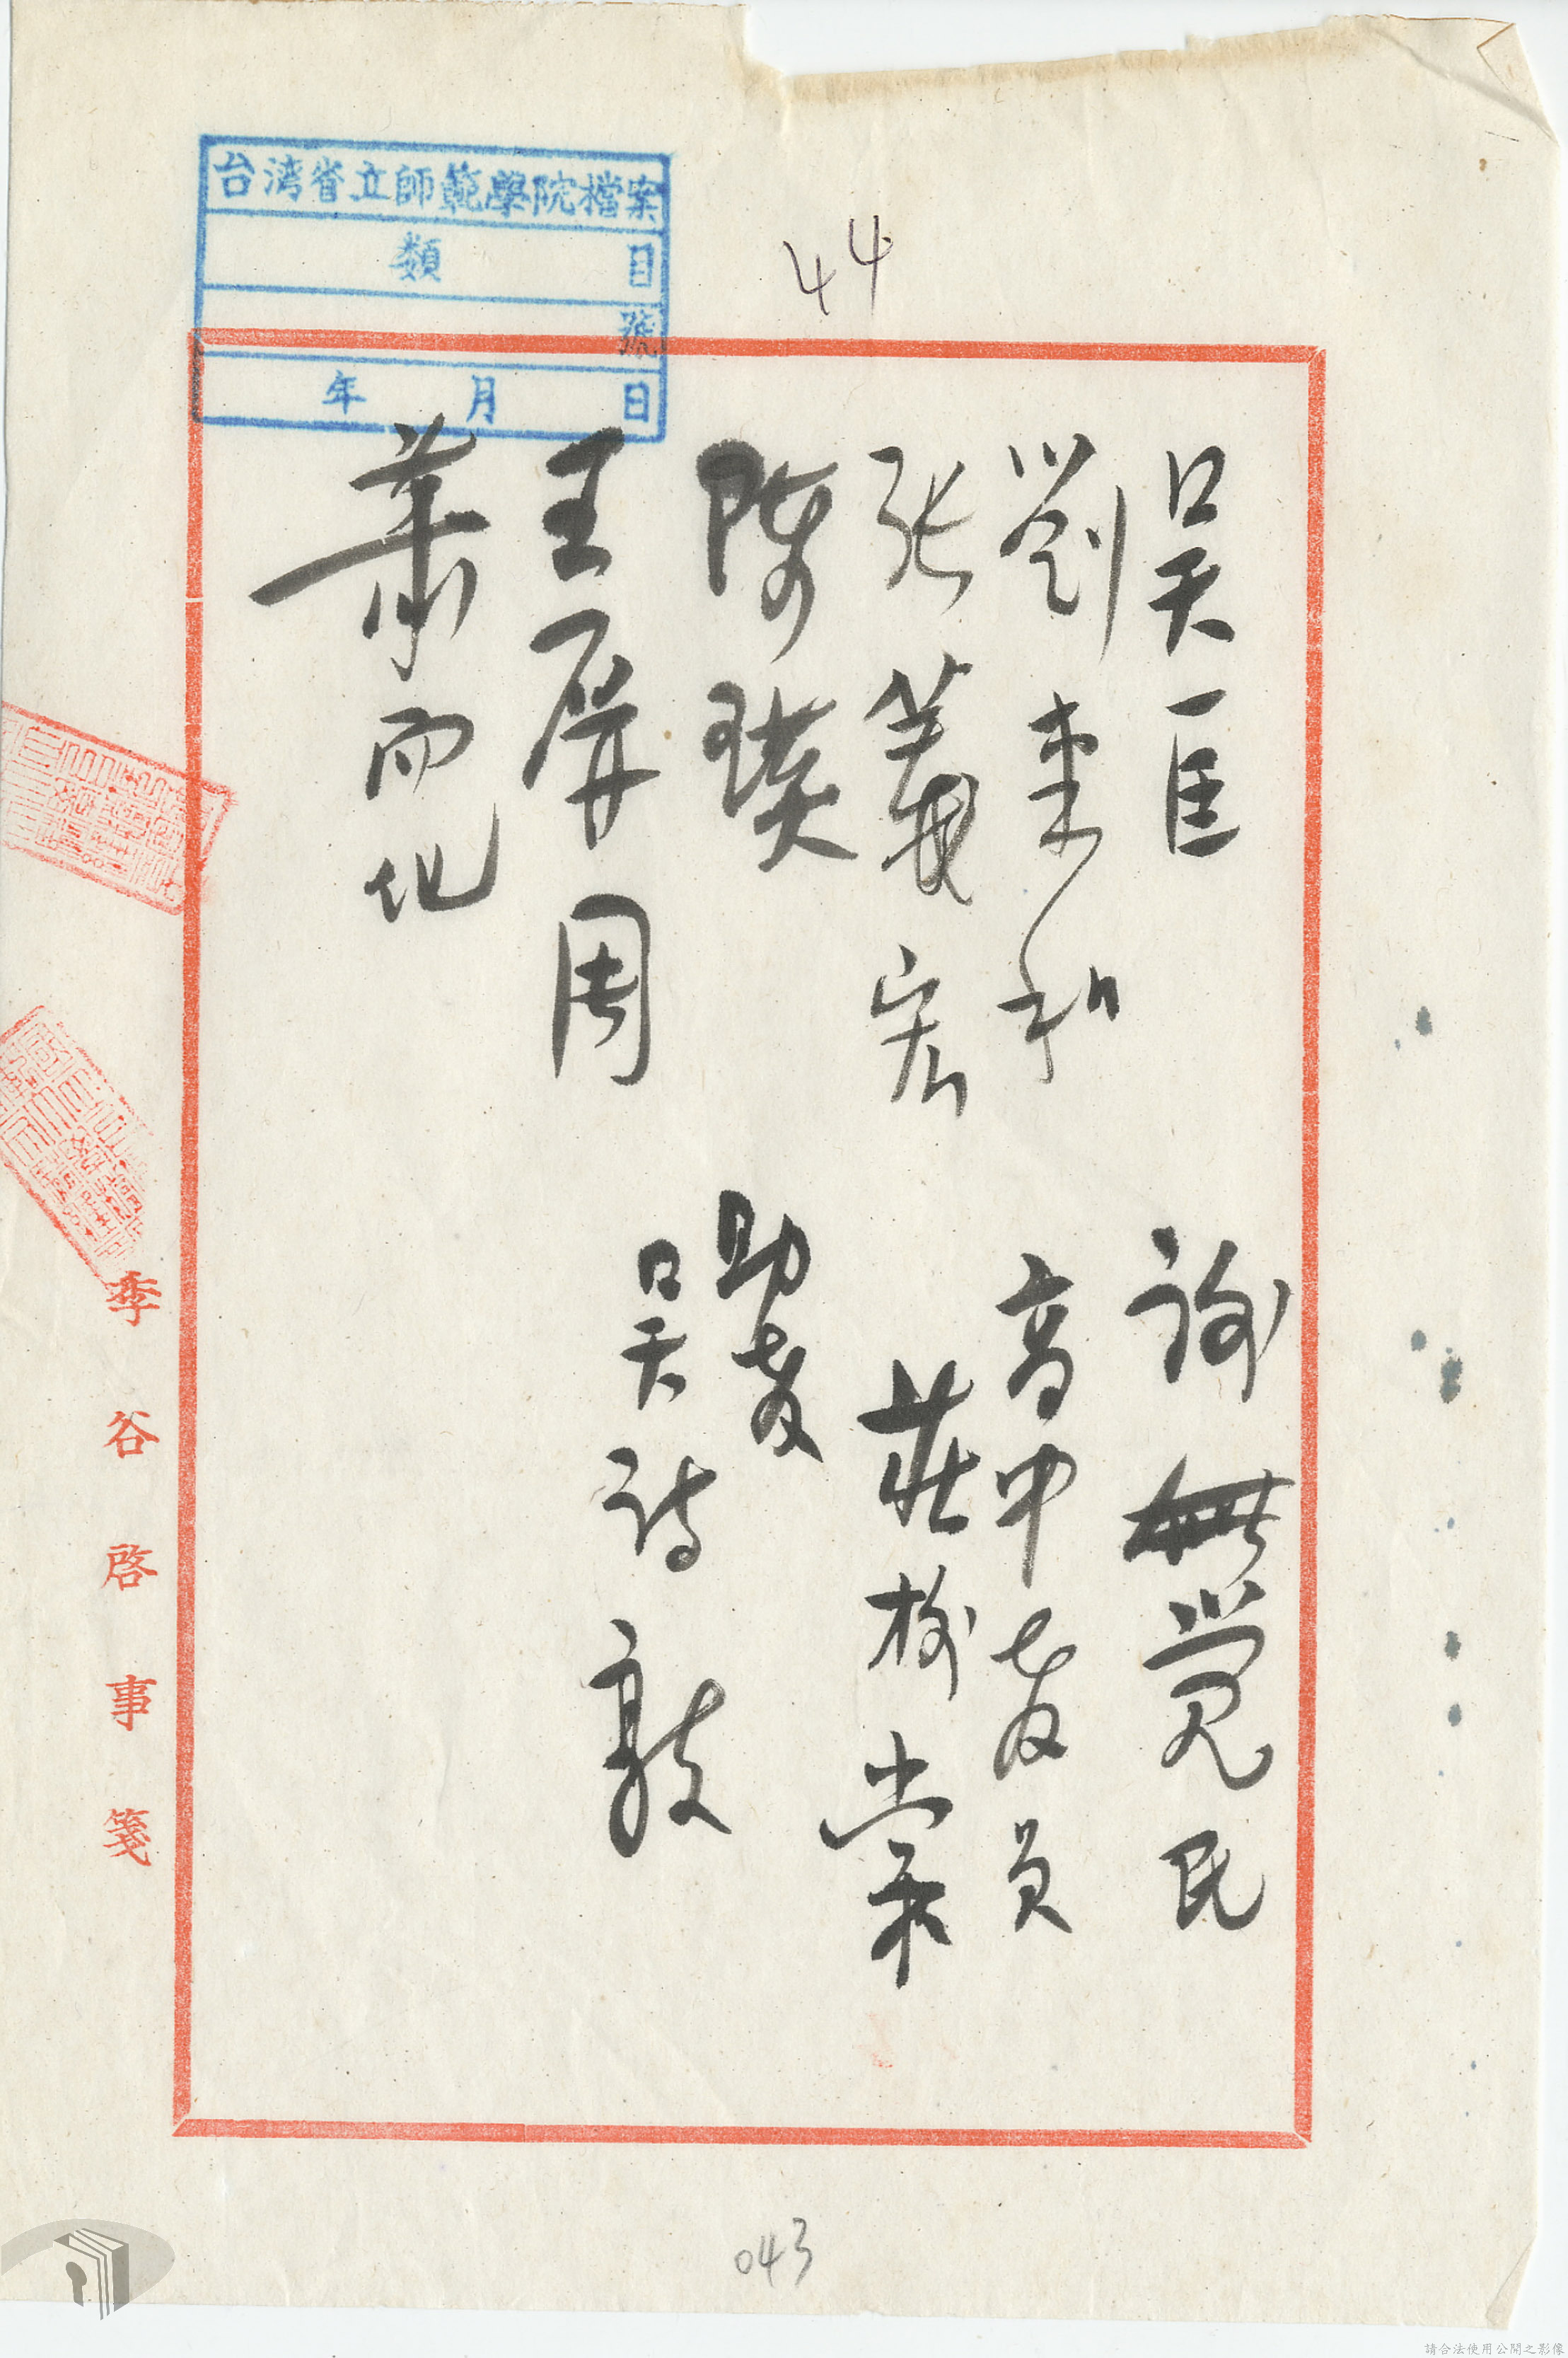 台湾省立師範學院檔案
類 目
號
年 月 日
44
吳
謝 覺民
劉和
高中教員
張義宏
莊棠
陳
助教
王屏周
吳詩敦
蕭而化
季谷啓事箋
043
請合法使用公開之影像